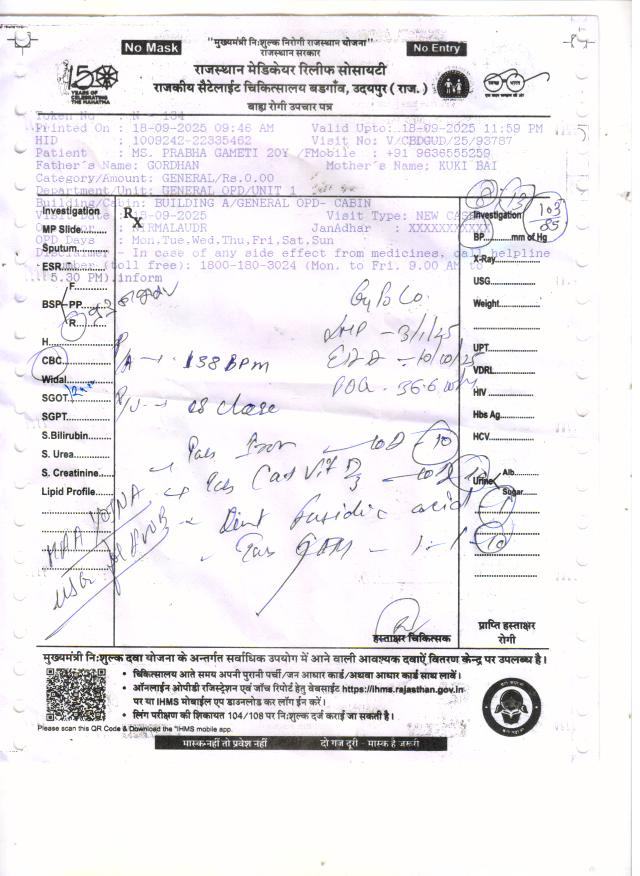 No Mask
"मुख्यमंत्री निःशुल्क निरोगी राजस्थान योजना"
No Entry
राजस्थान सरकार
राजस्थान मेडिकेयर रिलीफ सोसायटी
150 YEARS OF CELEBRATING THE MAHATMA
राजकीय सैटेलाईट चिकित्सालय बडगाँव, उदयपुर ( राज. )
बाह्य रोगी उपचार पत्र
Token No : N - 184
Printed On : 18-09-2025 09:46 AM Valid Upto: 18-09-2025 11:59 PM
HID : 1009242-22335462 Visit No: V/CBDGUD/25/93787
Patient : MS. PRABHA GAMETI 20Y /F Mobile : +91 9636555259
Father's Name: GORDHAN Mother's Name; KUKI BAI
Category/Amount: GENERAL/Rs.0.00
Department/Unit: GENERAL OPD/UNIT 1
Building/Cabin: BUILDING A/GENERAL OPD- CABIN
Visit Date : 18-09-2025 Visit Type: NEW CASE
NIRMALAUDR JanAdhar : XXXXXXXXXX
OPD Days : Mon,Tue,Wed,Thu,Fri,Sat,Sun
Disclaimer - In case of any side effect from medicines, call helpline
number (toll free): 1800-180-3024 (Mon. to Fri. 9.00 AM to
5.30 PM) inform
Investigation
MP Slide
Sputum
ESR
BSP F
PP
R
H
CBC
Widal
SGOT
SGPT
S.Bilirubin
S. Urea
S. Creatinine
Lipid Profile
Rx
LMP - 3/1/25
EDD - 10/10/25
POG - 36.6 wk
P/A → 138 BPM
P/V → os close
Tab Iron OD 10
Tab Cal Vit D3 OD 10
Oint fusidic acid
1-1 10
Investigation
103
85
BP mm of Hg
X-Ray
USG
Weight
UPT
VDRL
HIV
Hbs Ag
HCV
Urine Alb.
Sugar
हस्ताक्षर चिकित्सक
प्राप्ति हस्ताक्षर
रोगी
मुख्यमंत्री निःशुल्क दवा योजना के अन्तर्गत सर्वाधिक उपयोग में आने वाली आवश्यक दवाऐं वितरण केन्द्र पर उपलब्ध है।
• चिकित्सालय आते समय अपनी पुरानी पर्ची/जन आधार कार्ड/अथवा आधार कार्ड साथ लावें।
• ऑनलाईन ओपीडी रजिस्ट्रेशन एवं जाँच रिपोर्ट हेतु वेबसाईट https://ihms.rajasthan.gov.in
पर या IHMS मोबाईल एप डाउनलोड कर लॉग ईन करें।
• लिंग परीक्षण की शिकायत 104/108 पर निःशुल्क दर्ज कराई जा सकती है।
Please scan this QR Code & Download the "IHMS mobile app.
मास्क नहीं तो प्रवेश नहीं दो गज दूरी - मास्क है जरूरी